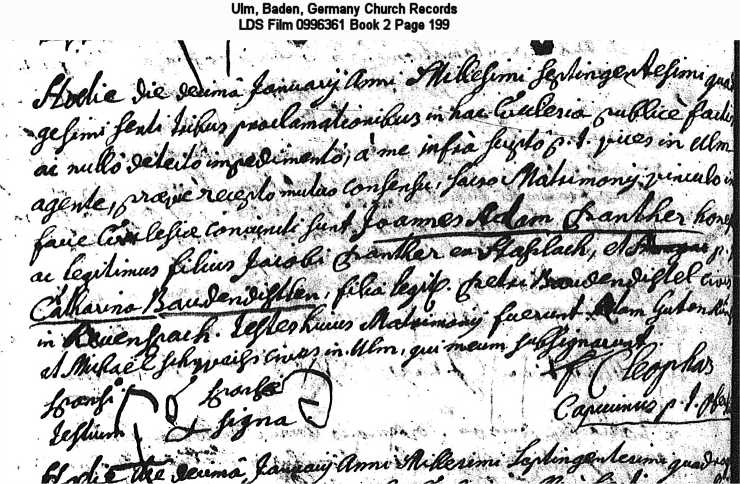 Ulm, Baden, Germany Church Records
LDS Film 0996361 Book 2 Page 199
Hodie die decimâ Januarij Anni Millesimi Septingentesimi quadra
gesimi sexti tribus proclamationibus in hac Ecclesia publicè factis
ac nullô detectô impedimentô, à me infrà scriptô p. t. vices in Ulm
agente, præviè recepto mutuo consensu, sacro Matrimonij vinculo in
facie Ecclesiæ conjuncti sunt Joannes Adam Panther hones
ac legitimus filius Jacobi Panther ex Haslach, et
Catharina Baudendistlen, filia legit. Petri Baudendistel civis
in Testes huius Matrimonij fuerunt Adam
et Michael civis in Ulm, qui mecum subsignarunt.
F. Cleophas
sponsi sponsæ
Capucinus p. t.
testium signa
Hodie die decimâ Januarij Anni Millesimi Septingentesimi quadrag